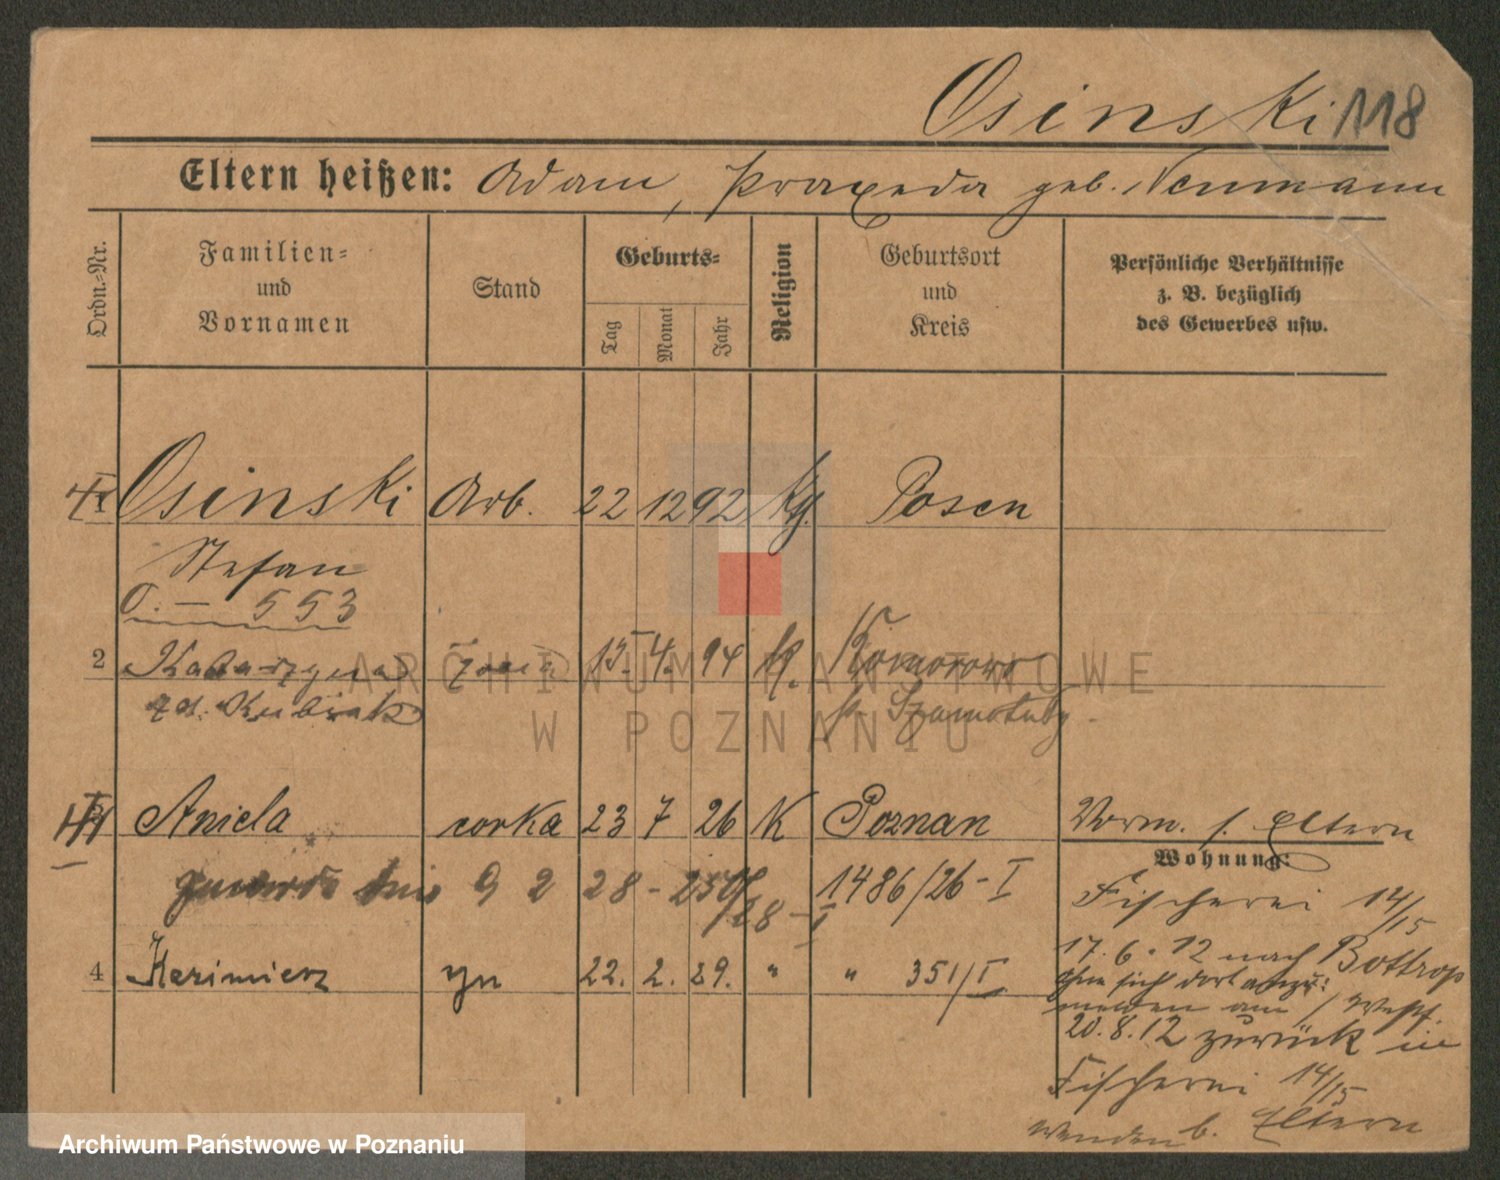 Osinski 118
Eltern heißen: Adam, Praxeda geb. Neumann
Ordn.-Nr.
Familien- und Vornamen
Stand
Geburts-
Tag
Monat
Jahr
Religion
Geburtsort und Kreis
Persönliche Verhältnisse
z. B. bezüglich
des Gewerbes usw.
Osinski Arb. 22 12 92 Kg. Posen
Stefan
O. — 553
2 Katarzyna żona 15. 4. 94 K. Komorowo
zd. Kubiak p. Szamotuły
Aniela corka 23 7 26 K Poznan Vorm. s. Eltern
Wohnung:
28 1486/26-I Fischerei 14/15
17. 6. 12 nach Bottrop
4 Kazimierz syn 22. 2. 29. " " 351/I ohne sich dort anzu:
melden am / Westf.
20. 8. 12 zurück in
Fischerei 14/15
wenden b. Eltern
ARCHIWUM PAŃSTWOWE
W POZNANIU
Archiwum Państwowe w Poznaniu